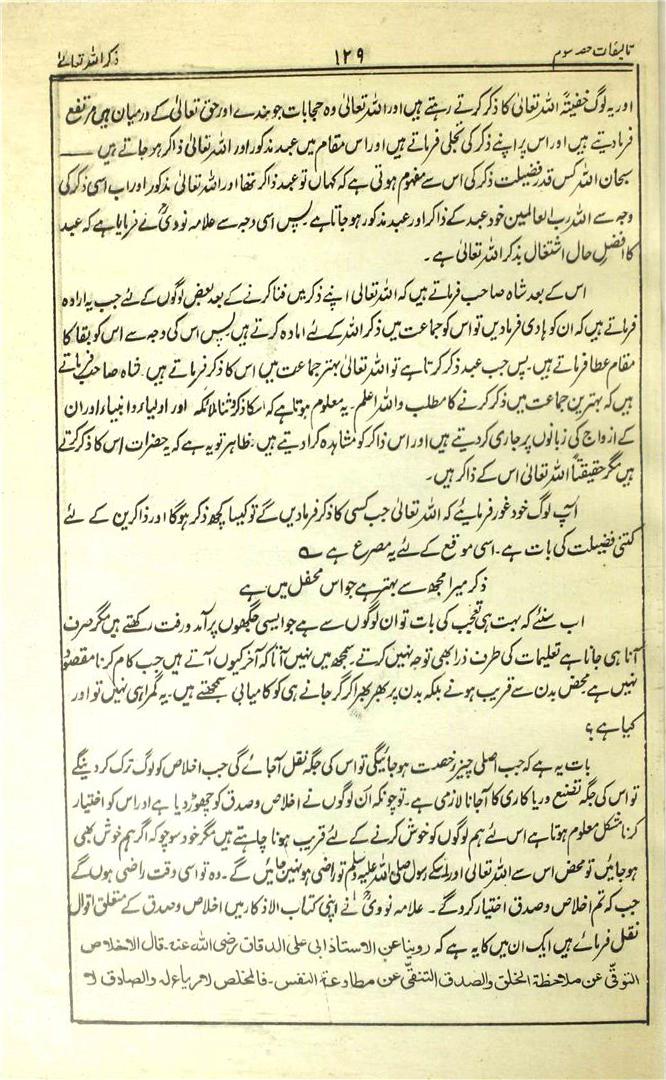 تالیفات حصہ سوم
۱۲۹
ذکر اللہ تعالےٰ
اور یہ لوگ خفیتہً اللہ تعالیٰ کا ذکر کرتے رہتے ہیں اور اللہ تعالیٰ وہ حجابات جو بندے اور حق تعالیٰ کے درمیان ہیں مرتفع
فرمادیتے ہیں اور اس پر اپنے ذکر کی تجلی فرماتے ہیں اور اس مقام میں عبد مذکور اور اللہ تعالیٰ ذاکر ہو جاتے ہیں ــــ
سبحان اللہ کس قدر فضیلت ذکر کی اس سے مفہوم ہوتی ہے کہ کہاں تو عبد ذاکر تھا اور اللہ تعالیٰ مذکور اور اب اسی ذکر کی
وجہ سے اللہ رب العالمین خود عبد کے ذاکر اور عبد مذکور ہو جاتا ہے۔ پس اسی وجہ سے علامہ نوویؒ نے فرمایا ہے کہ عبد
کا افضل حال اشتغال بذکر اللہ تعالیٰ ہے۔
اس کے بعد شاہ صاحب فرماتے ہیں کہ اللہ تعالیٰ اپنے ذکر میں فنا کرنے کے بعد بعض لوگوں کے لئے جب یہ ارادہ
فرماتے ہیں کہ ان کو ہادی فرمادیں تو اس کو جماعت میں ذکر اللہ کے لئے امادہ کرتے ہیں پس اس کی وجہ سے اس کو بقا کا
مقام عطا فرماتے ہیں۔ پس جب عبد ذکر کرتا ہے تو اللہ تعالیٰ بہتر جماعت میں اس کا ذکر فرماتے ہیں۔ شاہ صاحب فرماتے
ہیں کہ بہترین جماعت میں ذکر کرنے کا مطلب واللہ اعلم۔ یہ معلوم ہوتا ہے کہ اسکا ذکر و ثنا ملائکہ اور اولیاء و انبیاء اور ان
کے ازواج کی زبانوں پر جاری کر دیتے ہیں اور اس ذاکر کو مشاہدہ کرا دیتے ہیں۔ ظاہر تو یہ ہے کہ یہ حضرات اس کا ذکر کرتے
ہیں مگر حقیقتاً اللہ تعالیٰ اس کے ذاکر ہیں۔
آپ لوگ خود غور فرمایئے کہ اللہ تعالیٰ جب کسی کا ذکر فرمادیں گے تو کیسا کچھ ذکر ہوگا اور ذاکرین کے لئے
کتنی فضیلت کی بات ہے۔ اسی موقع کے لئے یہ مصرع ہے ؎
ذکر میرا مجھ سے بہتر ہے جو اس محفل میں ہے
اب سنئے کہ بہت ہی تعجب کی بات تو ان لوگوں سے ہے جو ایسی جگہوں پر آمد و رفت رکھتے ہیں مگر صرف
آنا ہی جانا ہے تعلیمات کی طرف ذرا بھی توجہ نہیں کرتے۔ سمجھ میں نہیں آتا کہ آخر کیوں آتے ہیں جب کام کرنا مقصود
نہیں ہے محض بدن سے قریب ہونے بلکہ بدن پر گر جانے ہی کو کامیابی سمجھتے ہیں۔ یہ گمراہی نہیں تو اور
کیا ہے؟
بات یہ ہے کہ جب اصلی چیز رخصت ہو جائیگی تو اس کی جگہ نقل آجائے گی جب اخلاص کو لوگ ترک کر دینگے
تو اس کی جگہ تصنع و ریا کاری کا آجانا لازمی ہے۔ تو چونکہ ان لوگوں نے اخلاص و صدق کو چھوڑ دیا ہے اور اس کو اختیار
کرنا مشکل معلوم ہوتا ہے اس لئے ہم لوگوں کو خوش کرنے کے لئے قریب ہونا چاہتے ہیں مگر خود سوچو کہ اگر ہم خوش بھی
ہو جائیں تو محض اس سے اللہ تعالیٰ اور اسکے رسول صلی اللہ علیہ وسلم تو راضی ہو نہیں جائیں گے۔ وہ تو اسی وقت راضی ہوں گے
جب کہ تم اخلاص و صدق اختیار کرو گے۔ علامہ نوویؒ نے اپنی کتاب الاذکار میں اخلاص و صدق کے متعلق اقوال
نقل فرمائے ہیں ایک ان میں کا یہ ہے کہ روینا عن الاستاذ ابی علی الدقاق رضی اللہ عنہ۔ قال الاخلاص
التوقّی عن ملاحظۃ الخلق والصدق التنقی عن مطاوعۃ النفس۔ فالمخلص لا ریاء لہ والصادق لا